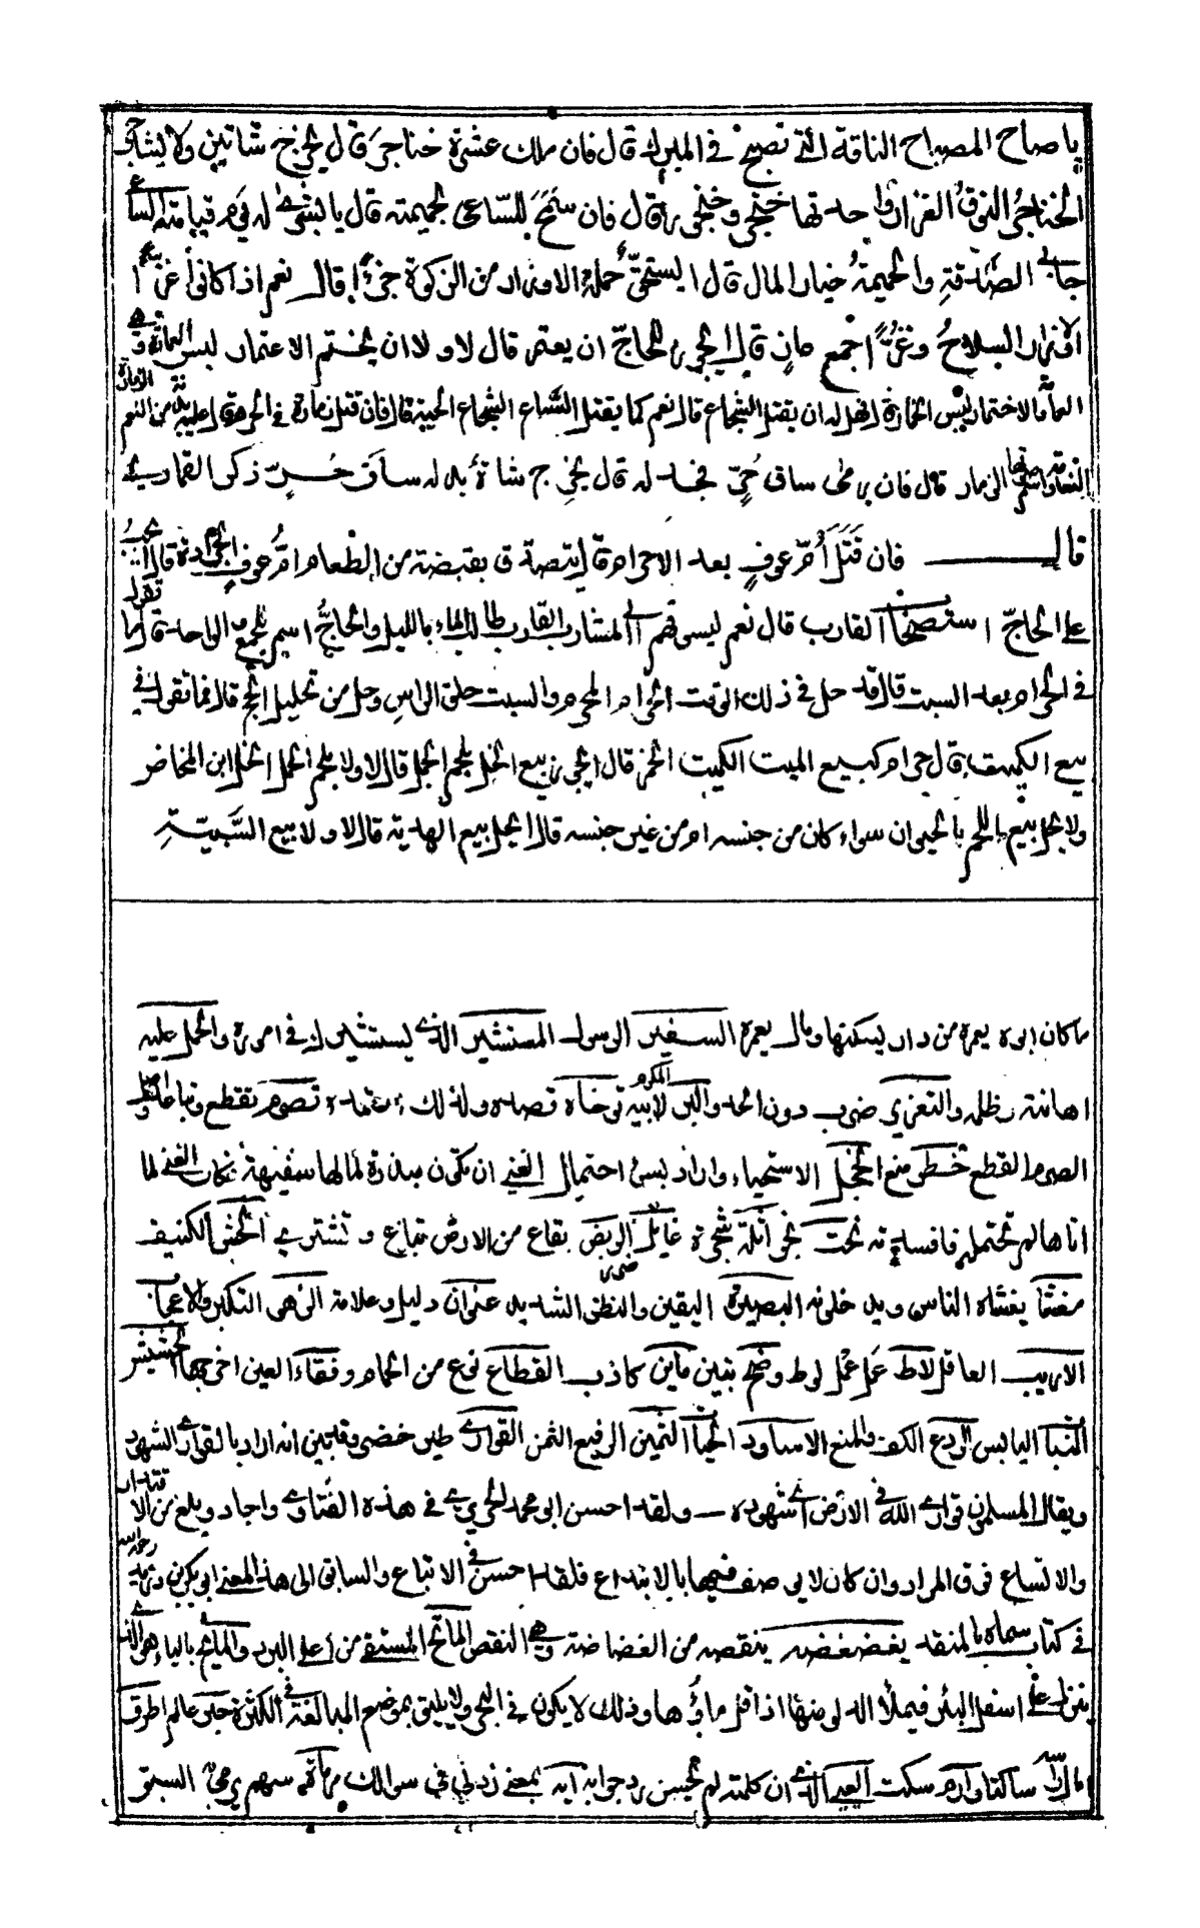 يا صاح المصباح الناقة التي تصبح في المبرك قال فان ملك عشرة خناجر قال يخرج شاتين ولا يشاجر
الخناجر النوق الغزار واحدتها خنجر وخنجر قال فان سمح للساعي بحميمته قال يا بشرى له يوم قيامته الساعي
جابي الصدقة والحميمة خيار المال قال ايستحق حملة الاوزار من الزكوة جزءا قال نعم اذا كانوا غزى
الاوزار السلاح وغزى جمع غاز قال ايجوز للحاج ان يعتمر قال لا ولا ان يختمر الاعتمار لبس العمارة وهي
العمامة والاختمار لبس الخمار قال فهل له ان يقتل الشجاع قال نعم كما يقتل السباع الشجاع الحية قال فان قتل زمارة في الحرم قال عليه بدنة من النعم الزمارة
النعامة واسم صوتها الزمار قال فان رمى ساق حر فجدله قال يخرج شاة بدله ساق حر ذكر القماري
قال فان قتل ام عوف بعد الاحرام قال يتصدق بقبضة من الطعام ام عوف الجرادة قال ايجب
على الحاج استصحاب القارب قال نعم ليسوقهم الى المشارب القارب طالب الماء بالليل والحاج اسم للجمع والواحد قال ما تقول
في الحرام بعد السبت قال قد حل في ذلك الوقت الحرام المحرم والسبت حلق الراس وحل من تحليل الحج قال فما تقول في
بيع الكميت قال حرام كبيع الميت الكميت الخمر قال ايجوز بيع الخل بلحم الجمل قال لا ولا بلحم الحمل الخل ابن المخاض
ولا يحل بيع اللحم بالحيوان سواء كان من جنسه ام من غير جنسه قال ايحل بيع الهدية قال لا ولا بيع السبية
ما كان ابوه يعمره من دار يسكنها ومال يعمره السفير الرسول المستشير الذي يستشيرك في اموره والحمل عليه
اهانته وظلمه والتعزير ضرب دون الحد والبر لابيه المكرم توخاه قصده ولذلك اعتمده تصوم تقطع وتباعد
الصوم القطع خطر منع الخجل الاستحياء واراد بسوء احتمال الغنى ان تكون مبذرة لمالها سفيهة فكان الغنى لما
اتاها لم تحتمله فافسدته نحت نجر اثلة شجرة غايل الربض بقاع من الارض تباع و تشترى الحش الكنيف
مغشا يغشاه الناس ويدخلونه البصيرة اليقين والنظر الشديد عنوان دليل وعلامة الزهو التكبر والاعجاب
الاريب العاقل لاط عمل عمل لوط وضح بتبين ماين كاذب القطاع نوع من الحمام وفقاء العين اخرجها الحشيش
النبات اليابس الردع الكف والمنع الاساود الحيات الثمين الرفيع الثمن القواري طير خضر وقد بين انه اراد بالقواري الشهود
ويقال المسلمون قواري الله في الارض اي شهوده — ولقد احسن ابو محمد الحريري في هذه الفتاوي واجاد وبلغ من الاقتدار
والاتساع فوق المراد وان كان لا يوصف فيها بالابتداع فلقد احسن في الاتباع والسابق الى هذا المعنى ابو بكر بن دريد رحمه الله
في كتاب سماه بالمنقذ يغضغضه ينقصه من الغضاضة وهي النقص الماتح المستقي من اعلى البير والمايح بالياء هو الذي
ينزل على اسفل البئر فيملأ الدلو منها اذا قل ماؤها وذلك لا يكون في البحر ولا يليق بموضع المبالغة في الكثرة حبر عالم اطرق
مال راسه ساكتا وارم سكت العيي الذي ان كلمته لم يحسن رد جوابه ايه بمعنى زدني في سوالك مرماة سهم يرمى به السبق